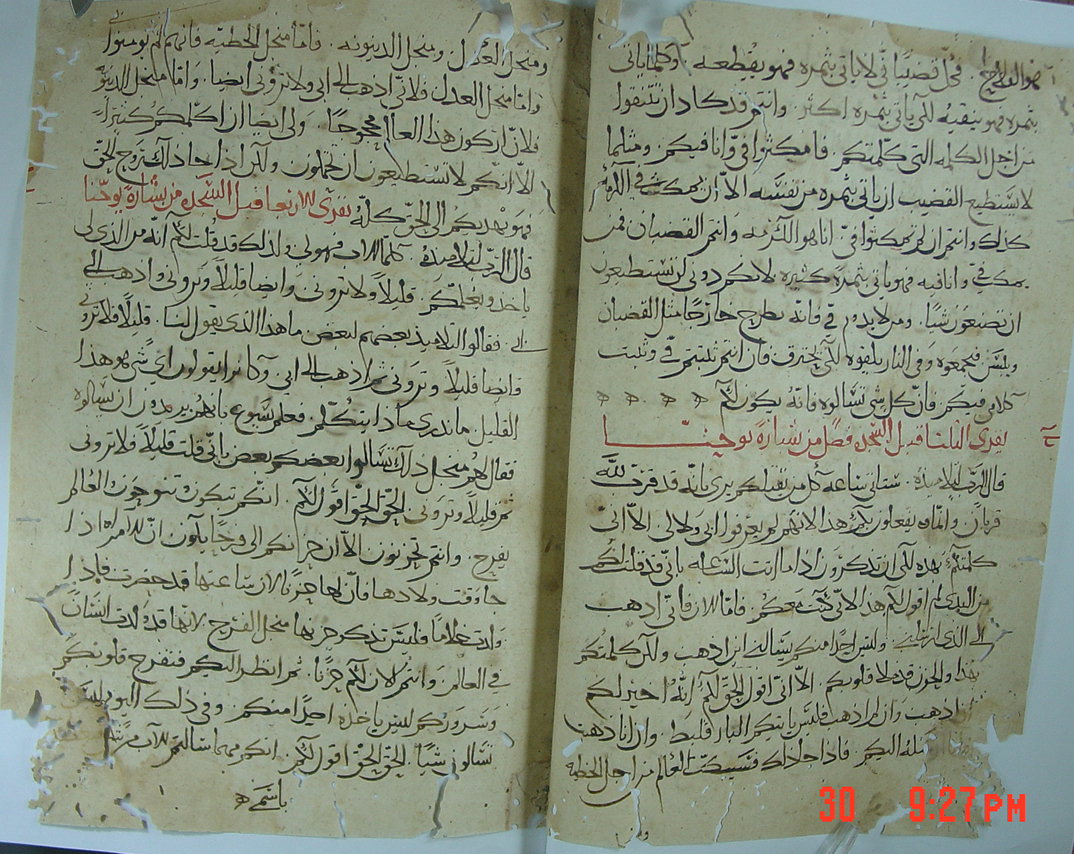 هو الفلاح. فكل قضيبًا فيّ لا ياتي بثمره فهو يقطعه. وكلما ياتي
بثمره فهو ينقيه لكي ياتي بثمره اكثر. وانتم قد كاد ان تنقوا
من اجل الكلمه التي كلمتكم. فامكثوا فيّ وانا فيكم. ومثلما
لا تستطيع القضيب ان ياتي بثمره من نفسه الا ان يمكث في الكرم
كذلك وانتم ان لم تمكثوا فيّ. انا هو الكرمه وانتم القضبان فمن
يمكث فيّ وانا فيه فهو ياتي بثمره كثيره لانكم دوني لن تستطيعون
ان تصنعون شيًا. ومن لا يدوم فيّ فانه يطرح خارجًا مثل القضبان
وييبس فيجمعوه وفي النار يلقوه لكي يحترق فان انتم ثبتم فيّ وثبت
كلامي فيكم فان كل شي تسالوه فانه يكون لكم
يقرى الثلثا قبل السجده فصل من بشارة يوحنا
قال الرب لتلاميذه. ستاتي ساعه كل من يقتلكم يرى بانه قد قرب لله
قربان. وانما يفعلون بكم هذا لانهم لم يعرفوا ابي ولا لي. الا اني
كلمتكم بهذه لكي ان تذكرون اذا ما اتت الساعه باني قد قلت لكم
من البدي لم اقول لكم هذا لاني كنت معكم. فاما الان فاني اذهب
الى الذي ارسلني. وليس احدًا منكم يسالني اين اذهب ولكن كلمتكم
بهذا والحزن قد ملا قلوبكم. الا اني اقول الحق لكم انه اخير لكم
اذهب وان لم اذهب فليس ياتيكم البارقليط. وان انا ذهبت
ارسله اليكم. فاذا جا ذاك فسيبكت العالم من اجل الخطيه
ومنجل العدل ومنجل الدينونه. فاما منجل الخطيه فانهم لم يومنوا بي
واما منجل العدل فلاني اذهب الى ابي ولا تروني ايضا. واما منجل الدينونه
فلان اركون هذا العالم محجوجًا. ولي ايضا ان اكلمكم كثيرًا
الا انكم لا تستطيعون ان تحملون. ولكن اذا جا ذلك روح الحق
فهو يهديكم الى الحق كله يقرى للاربعا قبل السجده من بشارة يوحنا
قال الرب لتلاميذه. كلما للاب فهو لي. ولذلك قد قلت لكم انه من الذي لي
ياخذ ويعلمكم. قليلًا ولا تروني وايضا قليلًا وتروني واذهب الى
ابي. فقالوا التلاميذ بعضهم لبعض ما هذا الذي يقول لنا. قليلًا فلا تروني
وايضا قليلًا وتروني واذهب الى ابي وكانوا يقولون اي شي هو هذا
القليل ما ندري ماذا يتكلم. فعلم يسوع بانهم يريدون ان يسالوه
فقال لهم منجل ذلك تسالوا بعضكم بعض باني قلت قليلًا فلا تروني
ثم قليلًا وتروني. الحق الحق اقول لكم. انكم تبكون تنوحون والعالم
يفرح. وانتم تحزنون الا ان حزنكم الى فرحًا يكون ان للامراه اذا
جا وقت ولادها فان لها حزنًا لان ساعتها قد حضرت فاذا
ولدت غلامًا فليس تذكر حزنها منجل الفرح لانها قد ولدت انسان
في العالم. وانتم الان لكم حزنًا. ثم انظر اليكم فتفرح قلوبكم
وسروركم ليس ياخذه احدًا منكم. وفي ذلك اليوم ليس
تسالون شيًا. الحق الحق اقول لكم. انكم مهما سالتم للاب مني
باسمي